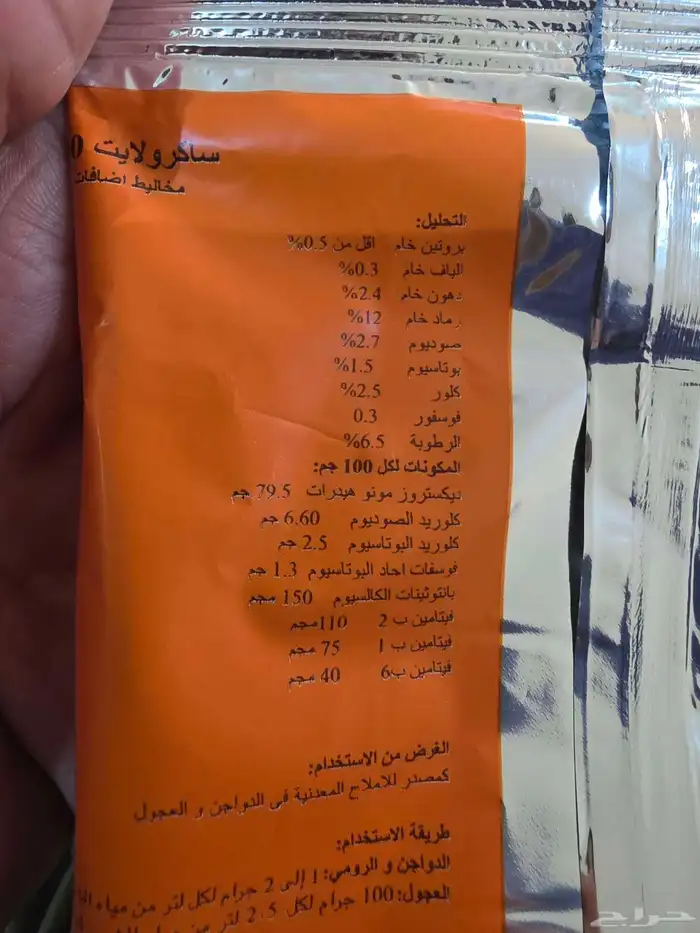 ساكرولايت 0
مخاليط اضافات
التحليل:
بروتين خام اقل من 0.5%
الياف خام 0.3%
دهون خام 2.4%
رماد خام 12%
صوديوم 2.7%
بوتاسيوم 1.5%
كلور 2.5%
فوسفور 0.3
الرطوبة 6.5%
المكونات لكل 100 جم:
ديكستروز مونو هيدرات 79.5 جم
كلوريد الصوديوم 6.60 جم
كلوريد البوتاسيوم 2.5 جم
فوسفات احاد البوتاسيوم 1.3 جم
بانتوثينات الكالسيوم 150 مجم
فيتامين ب 2 110مجم
فيتامين ب 1 75 مجم
فيتامين ب6 40 مجم
الغرض من الاستخدام:
كمصدر للاملاح المعدنية فى الدواجن و العجول
طريقة الاستخدام:
الدواجن و الرومي: 1 إلى 2 جرام لكل لتر من مياه
العجول: 100 جرام لكل 2.5 لتر من
حراج